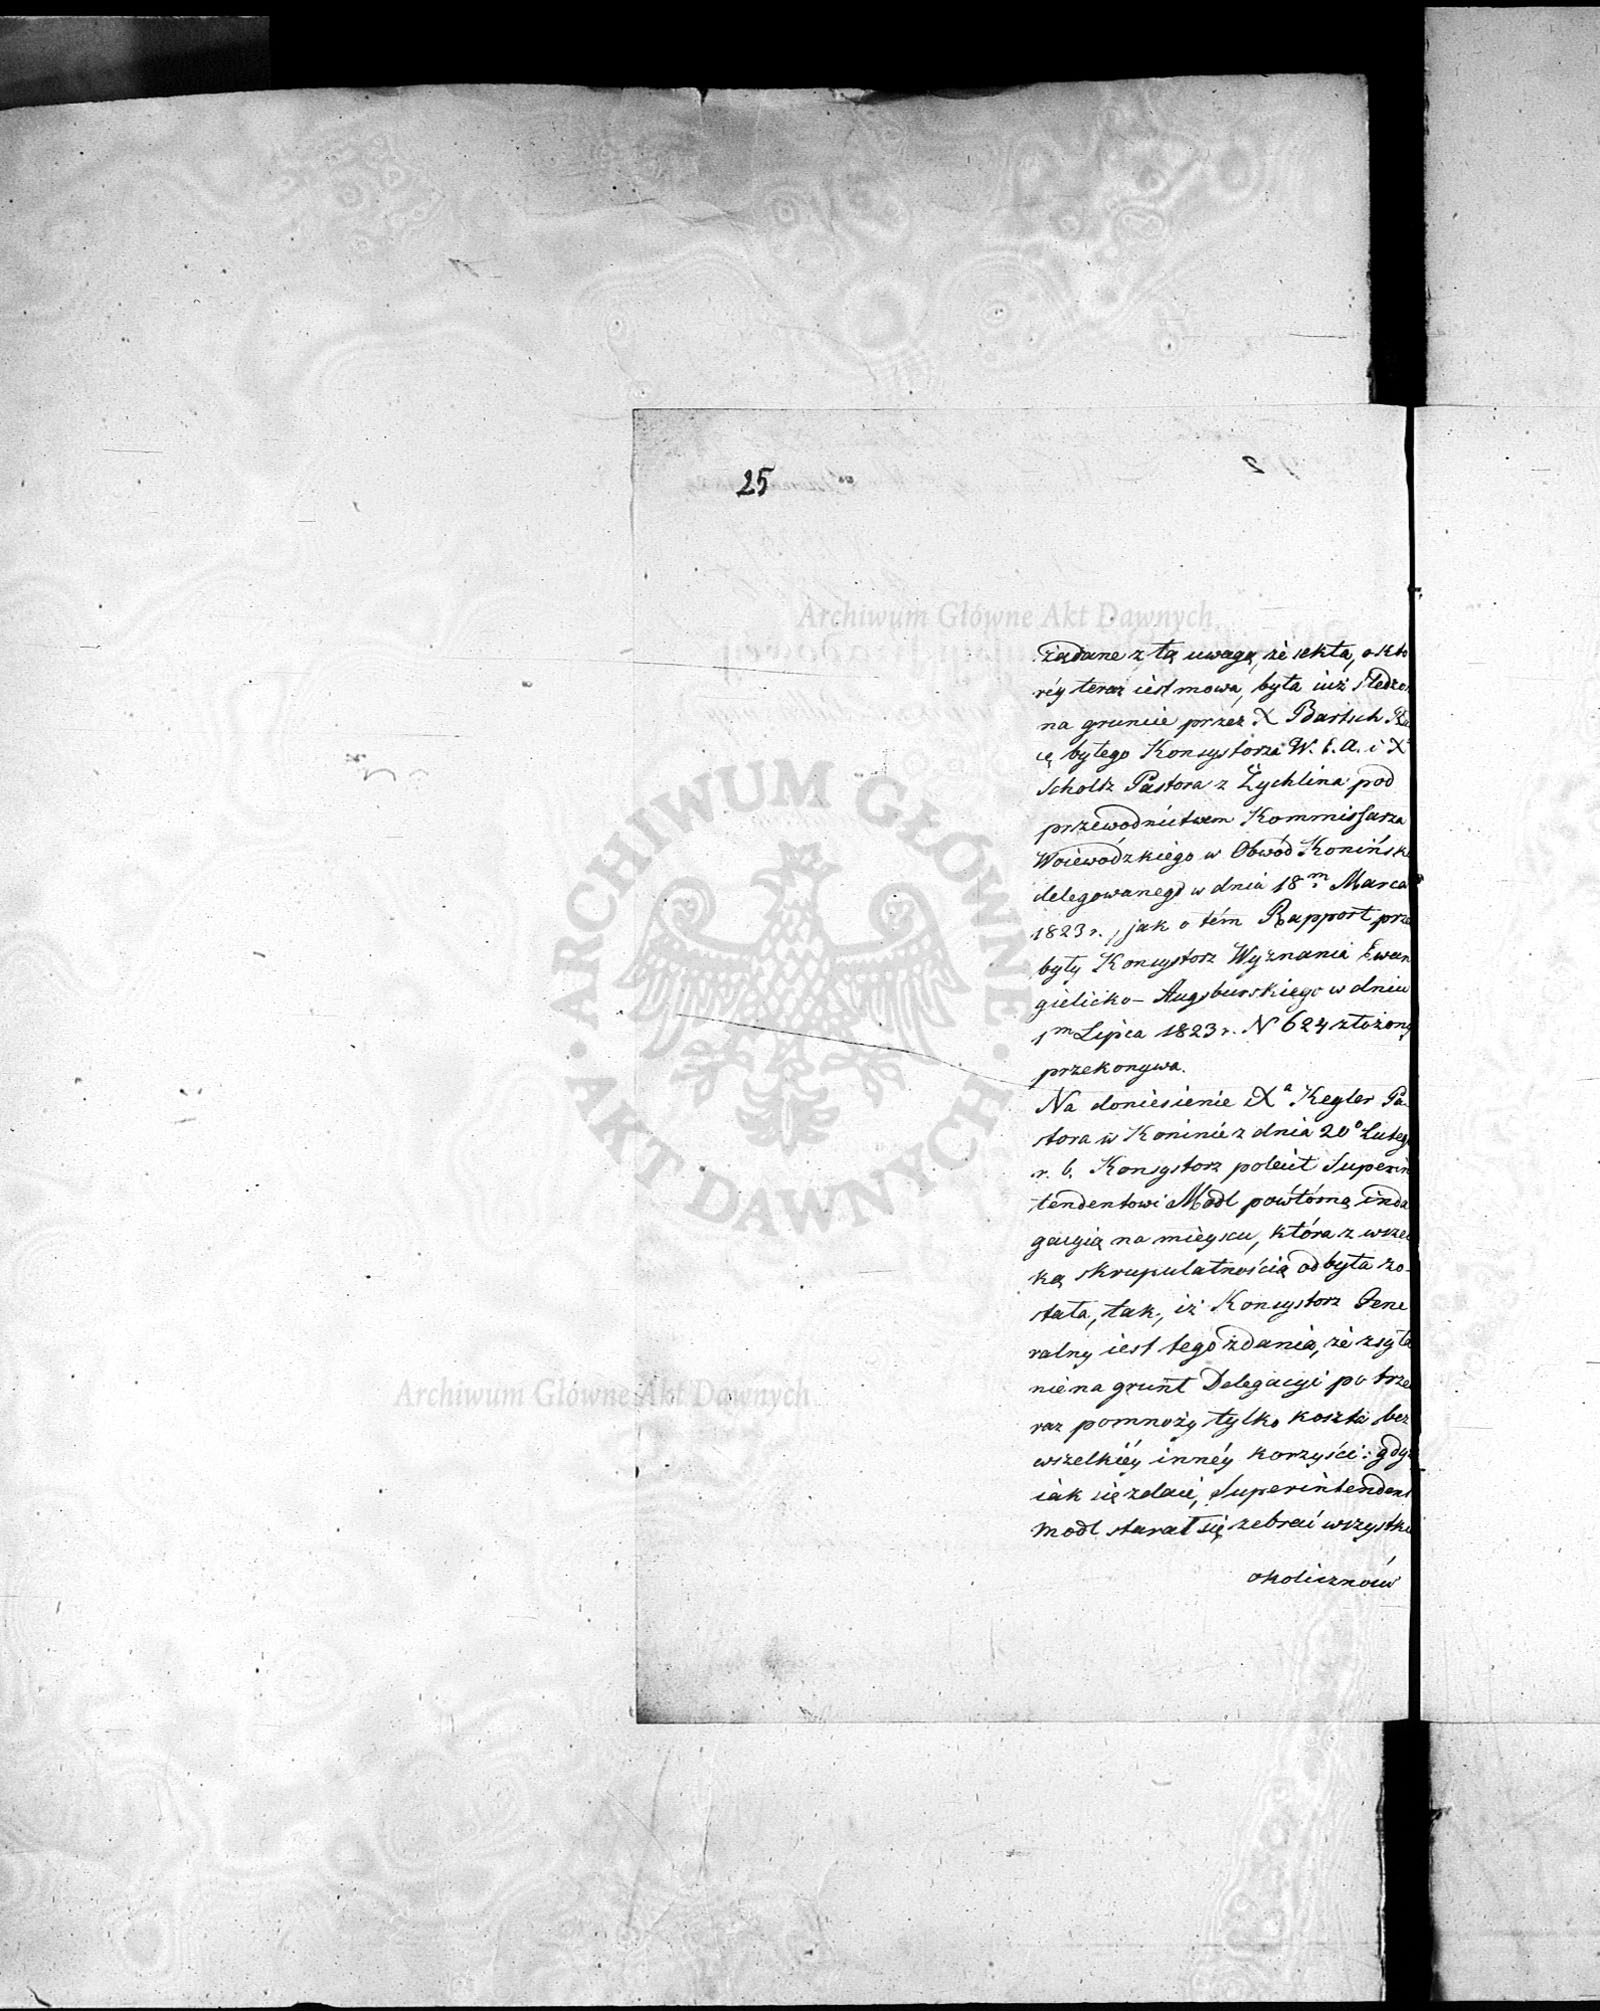 25
żądane z tą uwagą, że sekta, o któ
réy teraz iest mowa, była iuż śledzo
na gruncie przez X Bartsch Ra
cę byłego Konsystorza W. E. A. i Xa
Scholtz Pastora z Żychlina pod
przewodnictwem Kommissarza
Woiewódzkiego w Obwód Konińsk
delegowanego w dniu 18m Marca
1823 r., jak o tém Rapport prze
były Konsystorz Wyznania Ewan
gielicko-Augsburskiego w dniu
1m Lipca 1823 r. N 624 złożony
przekonywa.
Na doniesienie Xa Kegler Pa-
stora w Koninie z dnia 20o Luteg
r. b. Konsystorz polecił Superin
tendentowi Modl powtórną inda
gacyią na mieyscu, która z wszel
ką skrupulatnością odbyta zo-
stała, tak, iż Konsystorz Gene
ralny iest tego zdania, że zsyła
nie na grunt Delegacyi po trze
raz pomnoży tylko koszta bez
wszelkiéy innéy korzyści: gdyż
iak się zdaie, Superintendent
Modl starał się zebrać wszystkie
okoliczności
Archiwum Główne Akt Dawnych
Archiwum Główne Akt Dawnych
ARCHIWUM GŁÓWNE • AKT DAWNYCH •